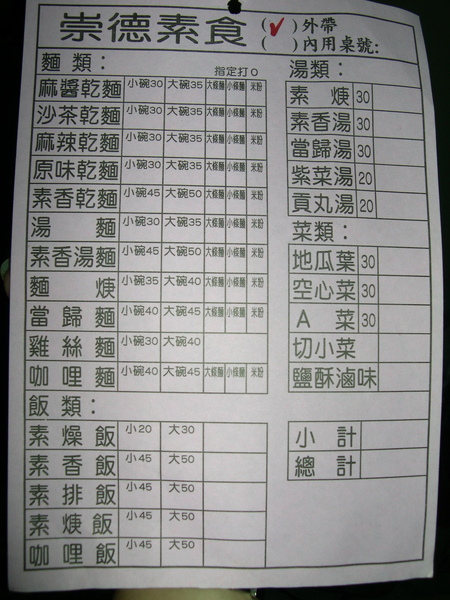 崇德素食 (✓)外帶
( )內用桌號:
麵類: 指定打O
麻醬乾麵 小碗30 大碗35 大條麵 小條麵 米粉
沙茶乾麵 小碗30 大碗35 大條麵 小條麵 米粉
麻辣乾麵 小碗30 大碗35 大條麵 小條麵 米粉
原味乾麵 小碗30 大碗35 大條麵 小條麵 米粉
素香乾麵 小碗45 大碗50 大條麵 小條麵 米粉
湯麵 小碗30 大碗35 大條麵 小條麵 米粉
素香湯麵 小碗45 大碗50 大條麵 小條麵 米粉
麵焿 小碗35 大碗40 大條麵 小條麵 米粉
當歸麵 小碗40 大碗45 大條麵 小條麵 米粉
雞絲麵 小碗30 大碗40
咖哩麵 小碗40 大碗45 大條麵 小條麵 米粉
飯類:
素燥飯 小20 大30
素香飯 小45 大50
素排飯 小45 大50
素焿飯 小45 大50
咖哩飯 小45 大50
湯類:
素焿 30
素香湯 30
當歸湯 30
紫菜湯 20
貢丸湯 20
菜類:
地瓜葉 30
空心菜 30
A菜 30
切小菜
鹽酥滷味
小計
總計